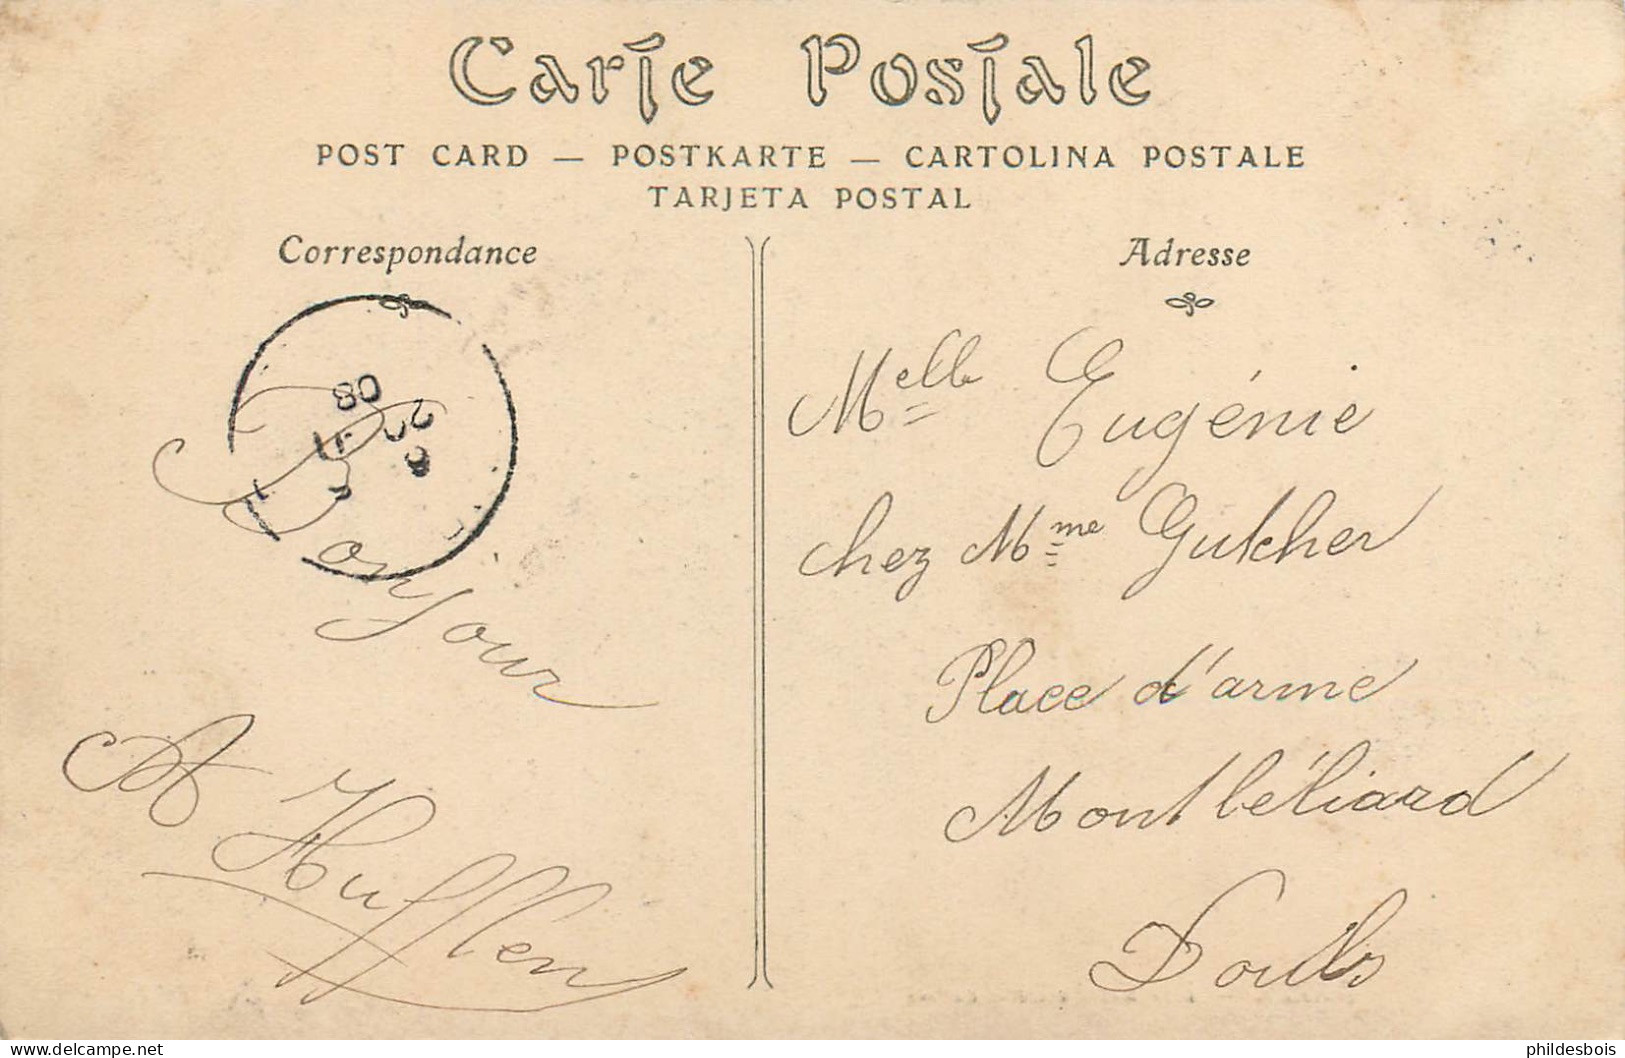 Carte Postale
POST CARD — POSTKARTE — CARTOLINA POSTALE
TARJETA POSTAL
Correspondance
Bonjour
A Hufflen
Adresse
Melle Eugénie
chez Mme Gutcher
Place d'arme
Montbéliard
Doubs
08
www.delcampe.net
phildesbois